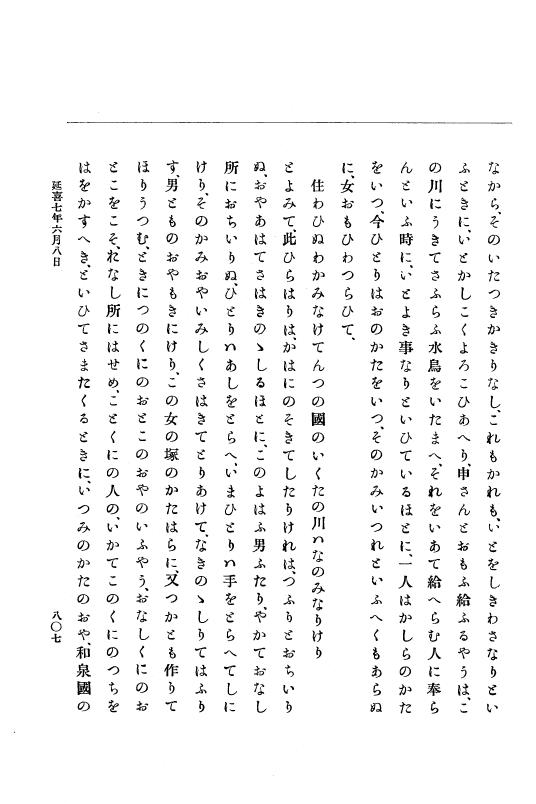 なから、そのいたつきかきりなし、これもかれも、いとをしきわさなりとい
ふときに、いとかしこくよろこひあへり、申さんとおもふ給ふるやうは、こ
の川にうきてさふらふ水鳥をいたまへ、それをいあて給へらむ人に奉ら
んといふ時に、いとよき事なりといひているほとに、一人はかしらのかた
をいつ、今ひとりはおのかたをいつ、そのかみいつれといふへくもあらぬ
に、女おもひわつらひて、
住わひぬわかみなけてんつの國のいくたの川ハなのみなりけり
とよみて、此ひらはりは、かはにのそきてしたりけれは、つふりとおちいり
ぬ、おやあはてさはきのゝしるほとに、このよはふ男ふたり、やかておなし
所におちいりぬ、ひとりハあしをとらへ、いまひとりハ手をとらへてしに
けり、そのかみおやいみしくさはきてとりあけて、なきのゝしりてはふり
す、男とものおやもきにけり、この女の塚のかたはらに、又つかとも作りて
ほりうつむ、ときにつのくにのおとこのおやのいふやう、おなしくにのお
とこをこそ、れなし所にはせめ、ことくにの人の、いかてこのくにのつちを
はをかすへき、といひてさまたくるときに、いつみのかたのおや、和泉國の
延喜七年六月八日
八〇七